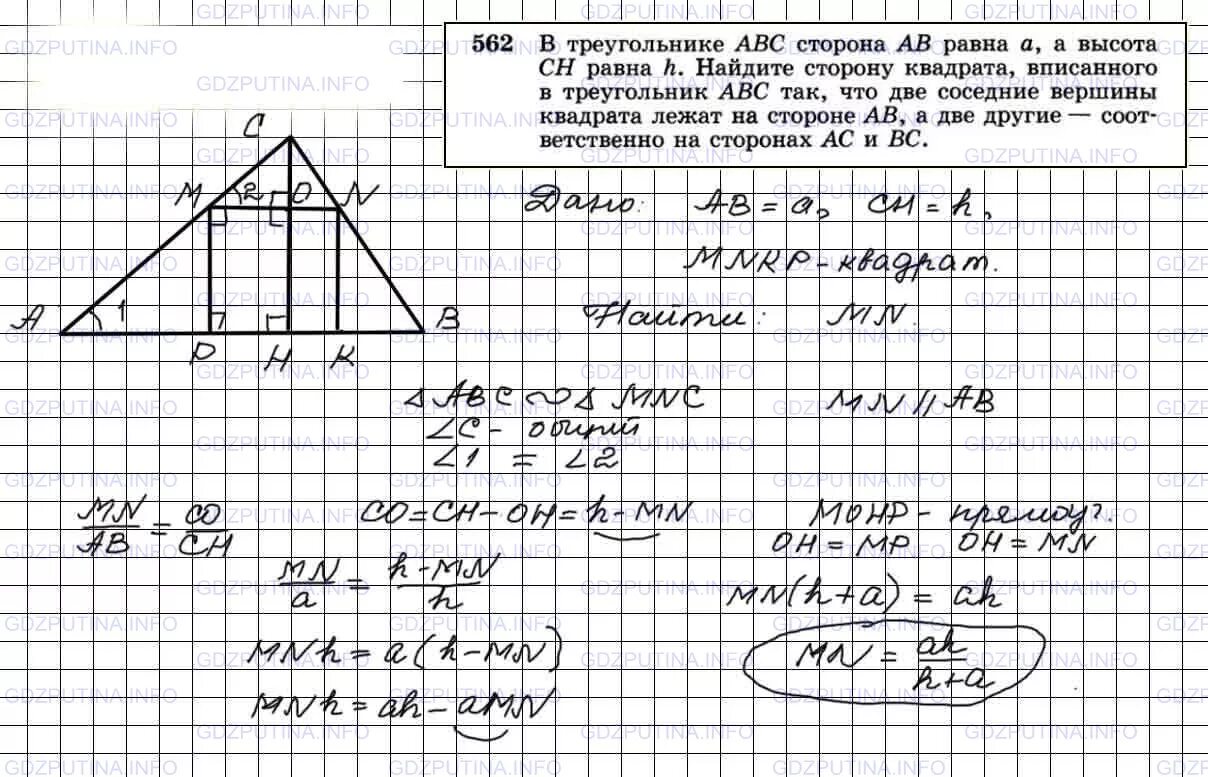 GDZPUTINA.INFO
562 В треугольнике ABC сторона AB равна a, а высота
CH равна h. Найдите сторону квадрата, вписанного
в треугольник ABC так, что две соседние вершины
квадрата лежат на стороне AB, а две другие — соот-
ветственно на сторонах AC и BC.
C
M 2 O N
A 1 B
P H K
Дано: AB = a, CH = h,
MNKP - квадрат.
Найти: MN.
△ ABC ∾ △ MNC MN // AB
∠C - общий
∠1 = ∠2
MN/AB = CO/CH CO = CH - OH = h - MN MOHP - прямоуг.
OH = MP OH = MN
MN/a = h - MN/h MN(h+a) = ah
MNh = a(h-MN) MN = ah/h+a
MNh = ah - aMN